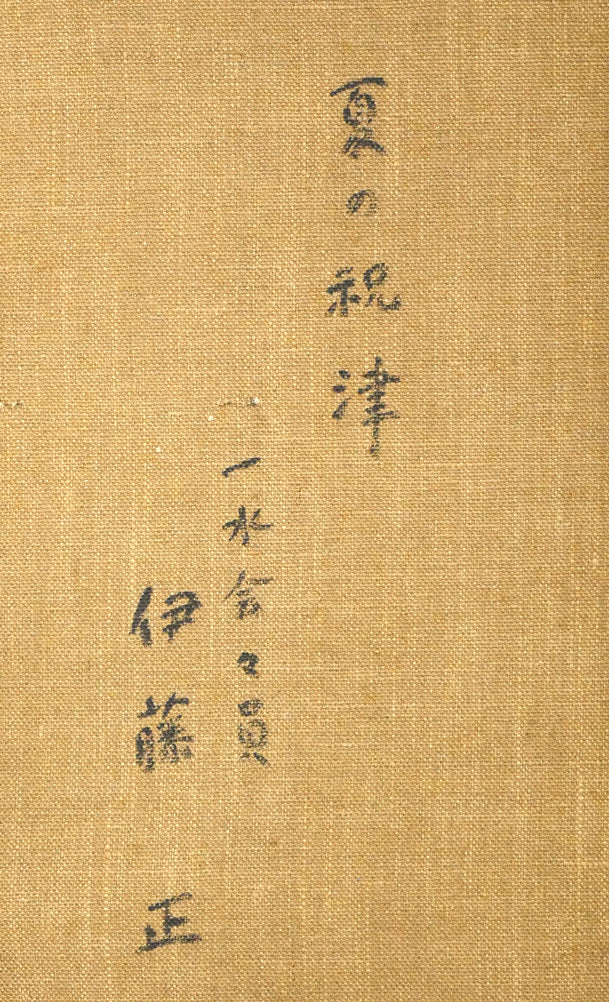 夏の祝津
一水会々員
伊藤 正